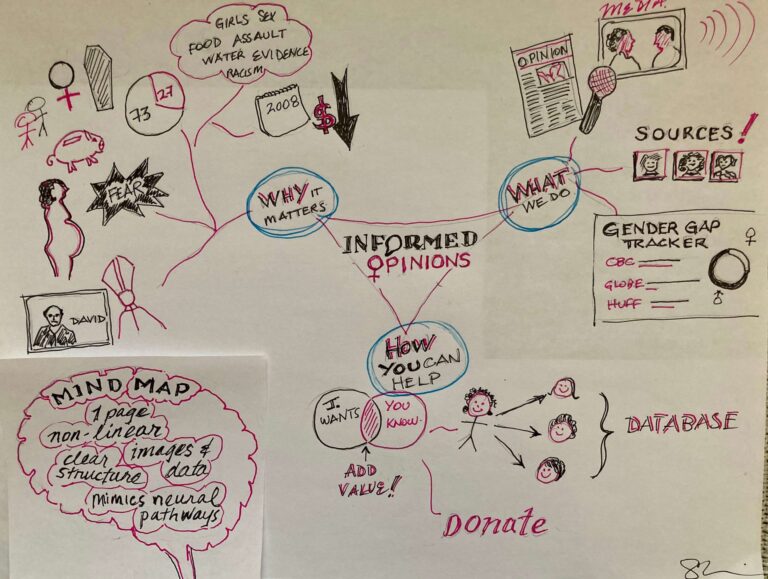 GIRLS SEX
FOOD ASSAULT
WATER EVIDENCE
RACISM
27
73
2008
$
FEAR
DAVID
WHY IT
MATTERS
INFORMED
OPINIONS
WHAT
WE DO
OPINION
MEDIA
SOURCES!
GENDER GAP
TRACKER
CBC
GLOBE
HUFF
HOW
YOU CAN
HELP
WANTS
YOU
KNOW
ADD
VALUE!!
DATABASE
DONATE
MIND MAP
1 page
non-linear
clear
structure
images &
data
mimics neural
pathways